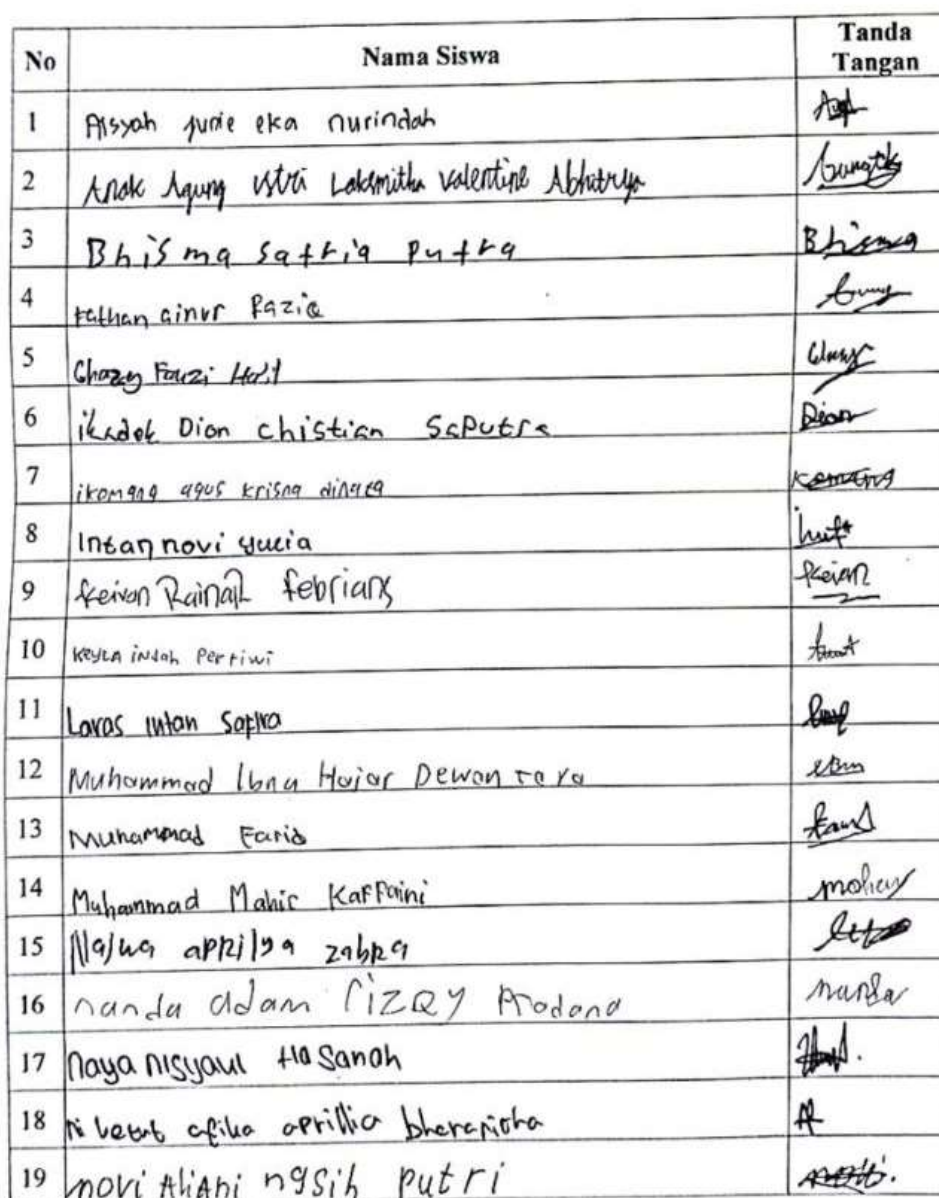 No Nama Siswa Tanda Tangan
1 Aisyah junie eka nurindah
2 Anak Agung istri Laksmitha valentine Abhitrya
3 Bhisma satria putra Bhisma
4 Fathan ainur Raziq
5 Ghazy Fauzi Hafil Ghazy
6 ikadek Dion chistian Saputra Dion
7 ikomang agus krisna dinata Komang
8 Intan novi yucia
9 Keivan Rainaik febrians Keian
10 Keyla indah Pertiwi
11 Laras intan Safira
12 Muhammad Ibnu Hajar Dewantara
13 Muhammad Farid
14 Muhammad Mahir Kaffaini
15 Najwa aprilya zahra
16 nanda adam rizqy Pradana nanda
17 Naya nisyaul Hasanah
18 ni ketut afika aprillia
19 novi Aliani ngsih putri